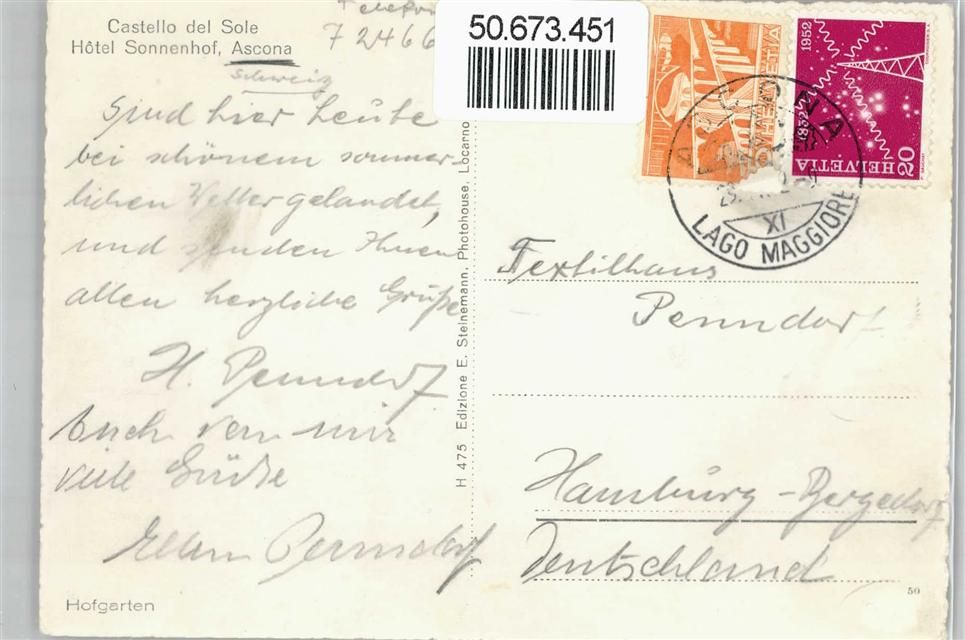 Castello del Sole
Hôtel Sonnenhof, Ascona
Schweiz
Telefon
72466
50.673.451
Sind hier heute
bei schönem sommer-
lichen Wetter gelandet,
und senden Ihnen
allen herzliche Grüße
H. Penndorf
Auch von mir
viele Grüße
Ellen Penndorf
Hofgarten
H 475 Edizione E. Steinemann, Photohouse, Locarno
HELVETIA
1852 1952
HELVETIA 20
ASCONA
XI
LAGO MAGGIORE
Textilhaus
Penndorf
Hamburg-Bergedorf
Deutschland
50